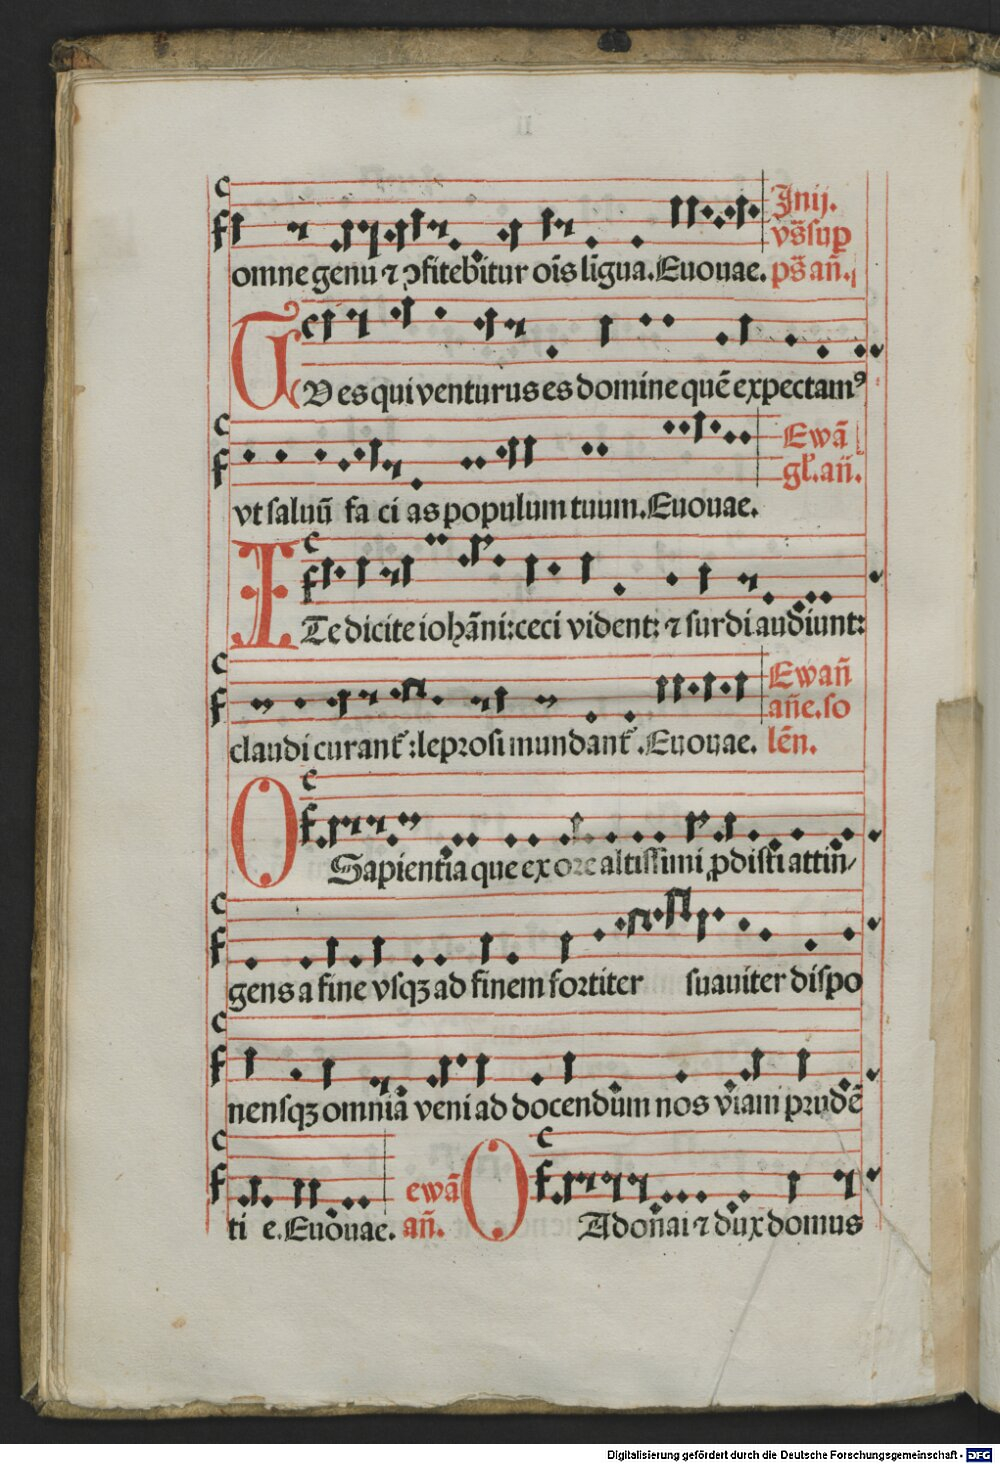 Jnij.
vs̄sup
omne genu ⁊ ↄfitebit̄ur oīs līgua. Euouae. ps̄ añ.
TV es qui venturus es domine quē expectamꝰ
Ewā
vt saluū fa ci as populum tuum. Euouae. gl̄. añ.
ITe dicite iohāni: ceci vident: ⁊ surdi audiunt:
Ewañ
añe. so
claudi curant᷑: leprosi mundant᷑. Euouae. lēn.
O Sapientia que ex ore altissimi ꝓdisti attin̄/
gens a fine vsqꝫ ad finem fortiter suauiter dispo
nensqꝫ omnia veni ad docendum nos viam prudē
ti e. Euouae. ewā añ. O Adonai ⁊ dux domus
Digitalisierung gefördert durch die Deutsche Forschungsgemeinschaft - DFG